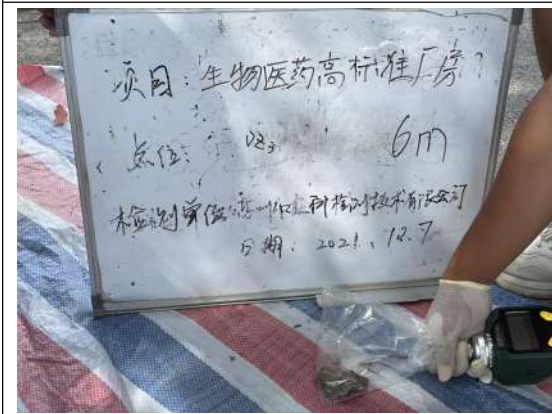 项目：生物医药高标准厂房
点位： 6m
检测单位： 科检测技术有限公司
日期：2021.12.7